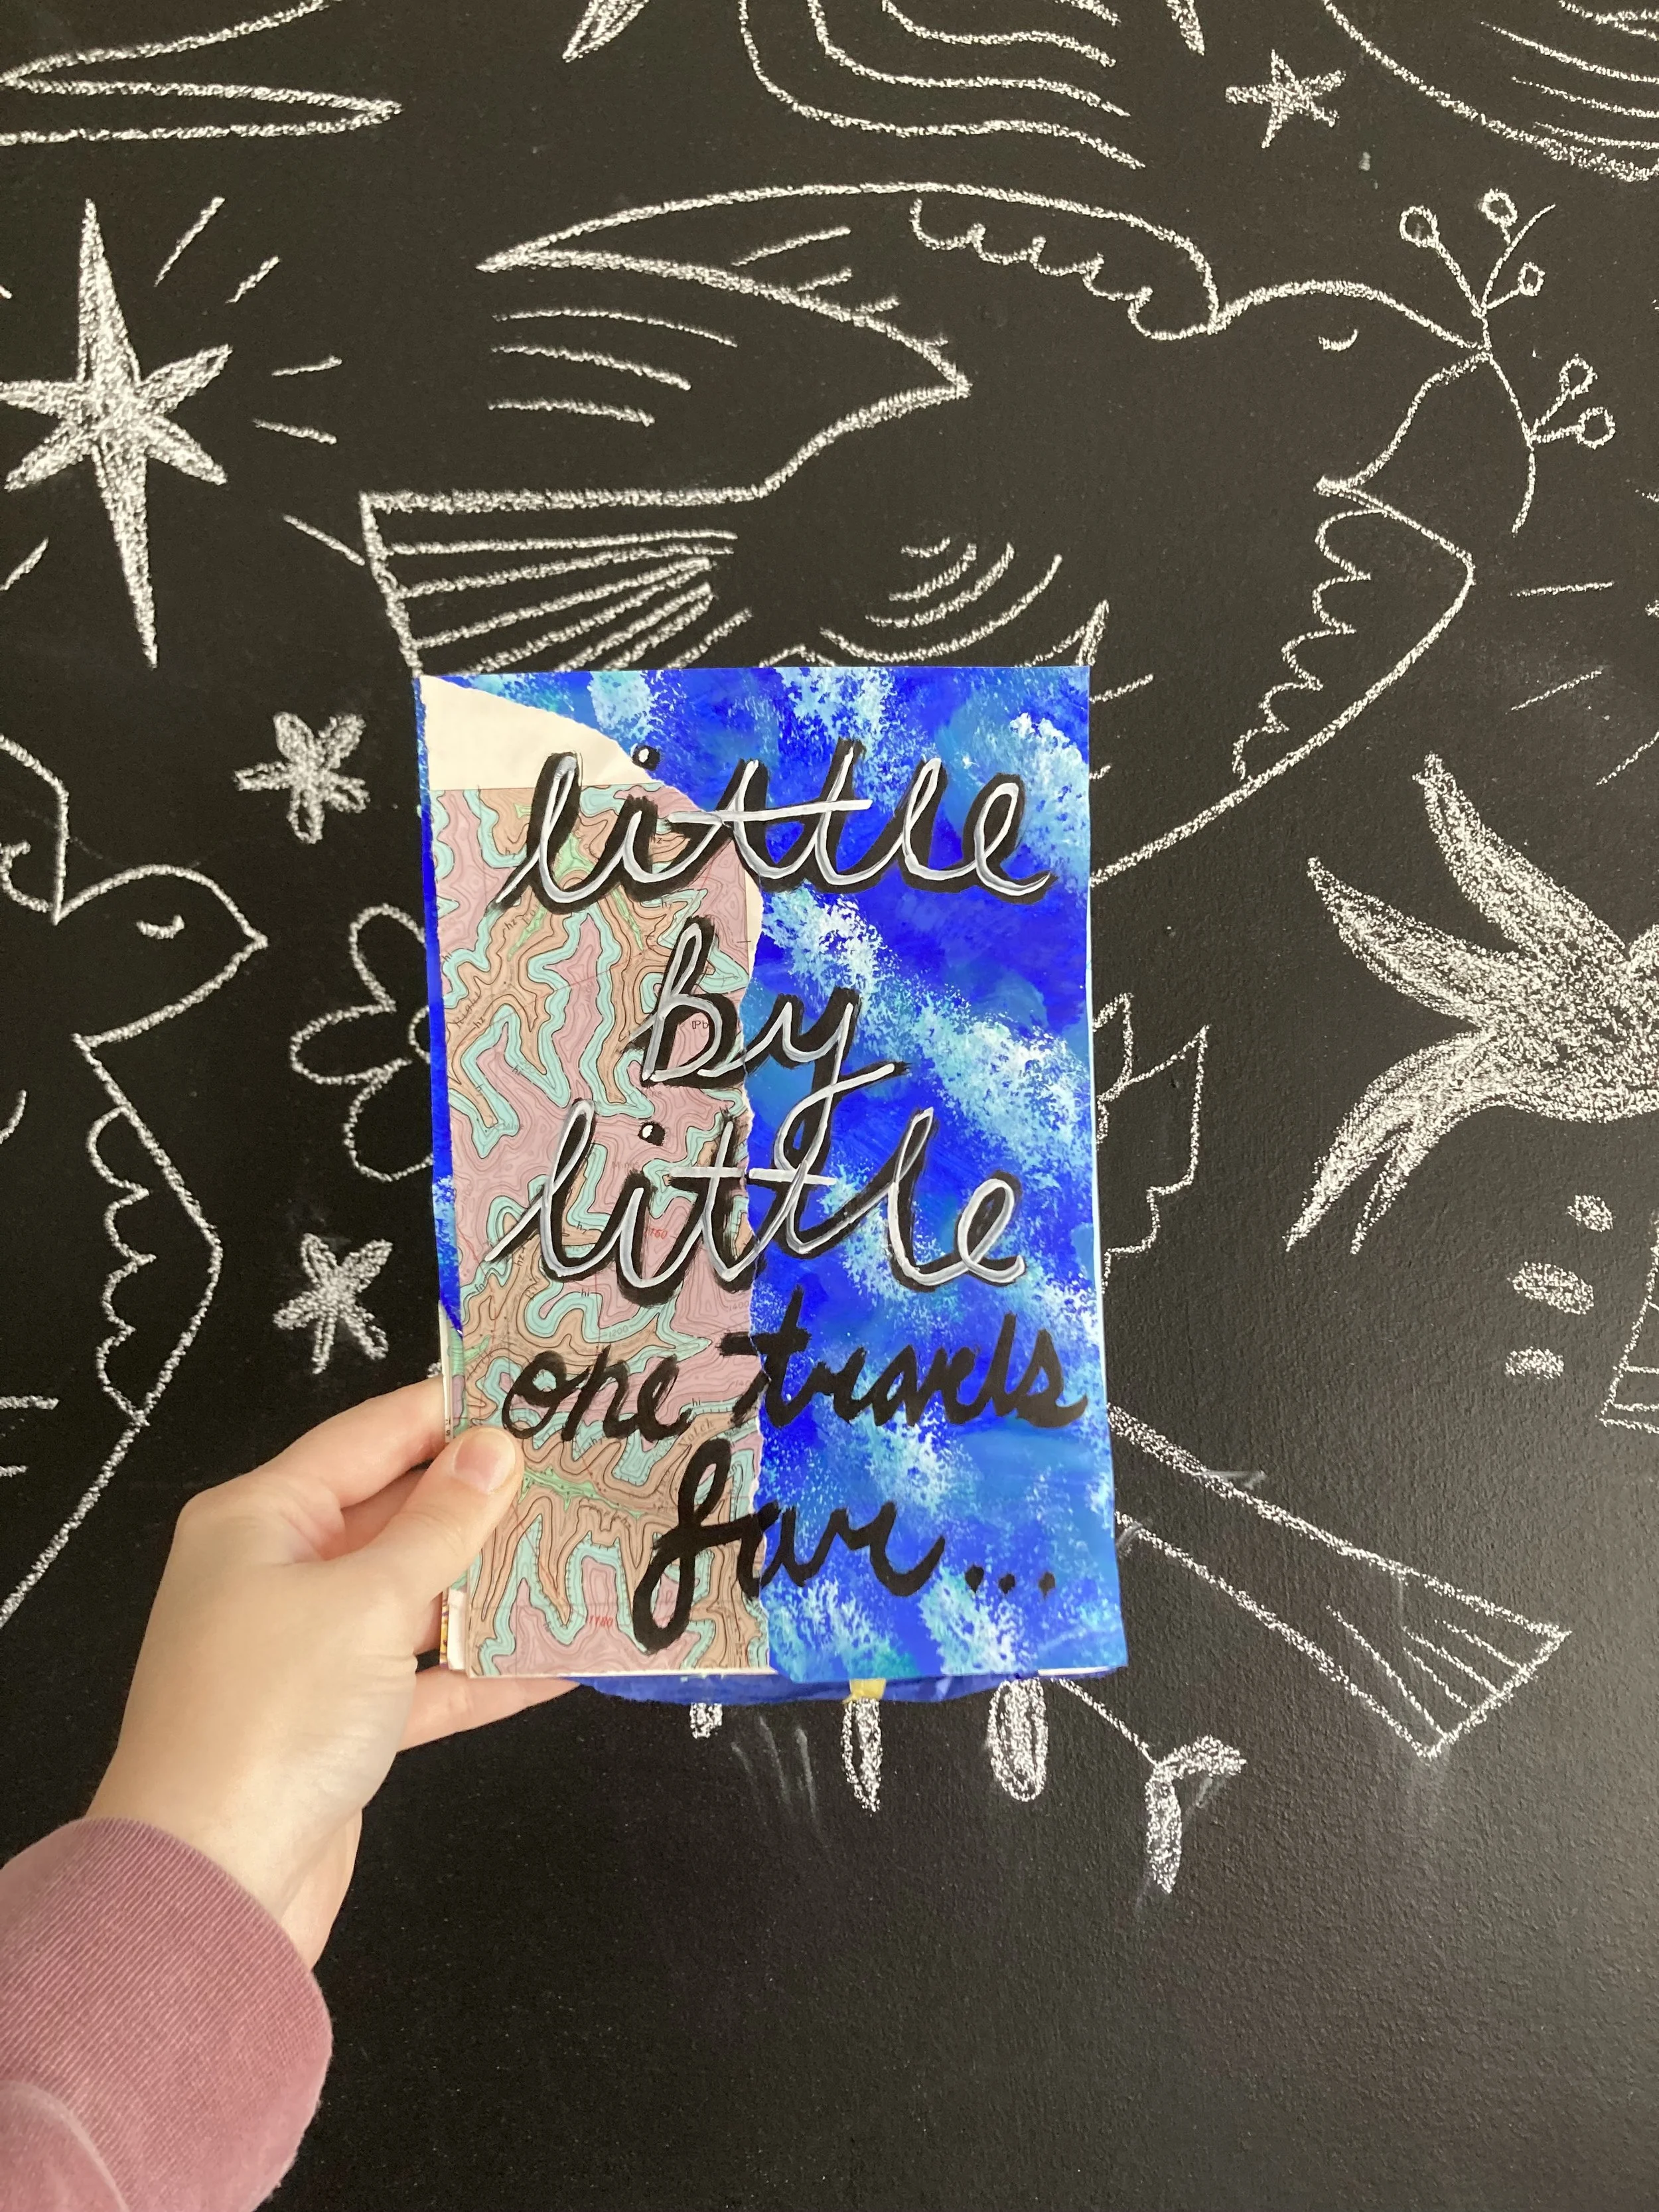 little
by
little
one travels
far...